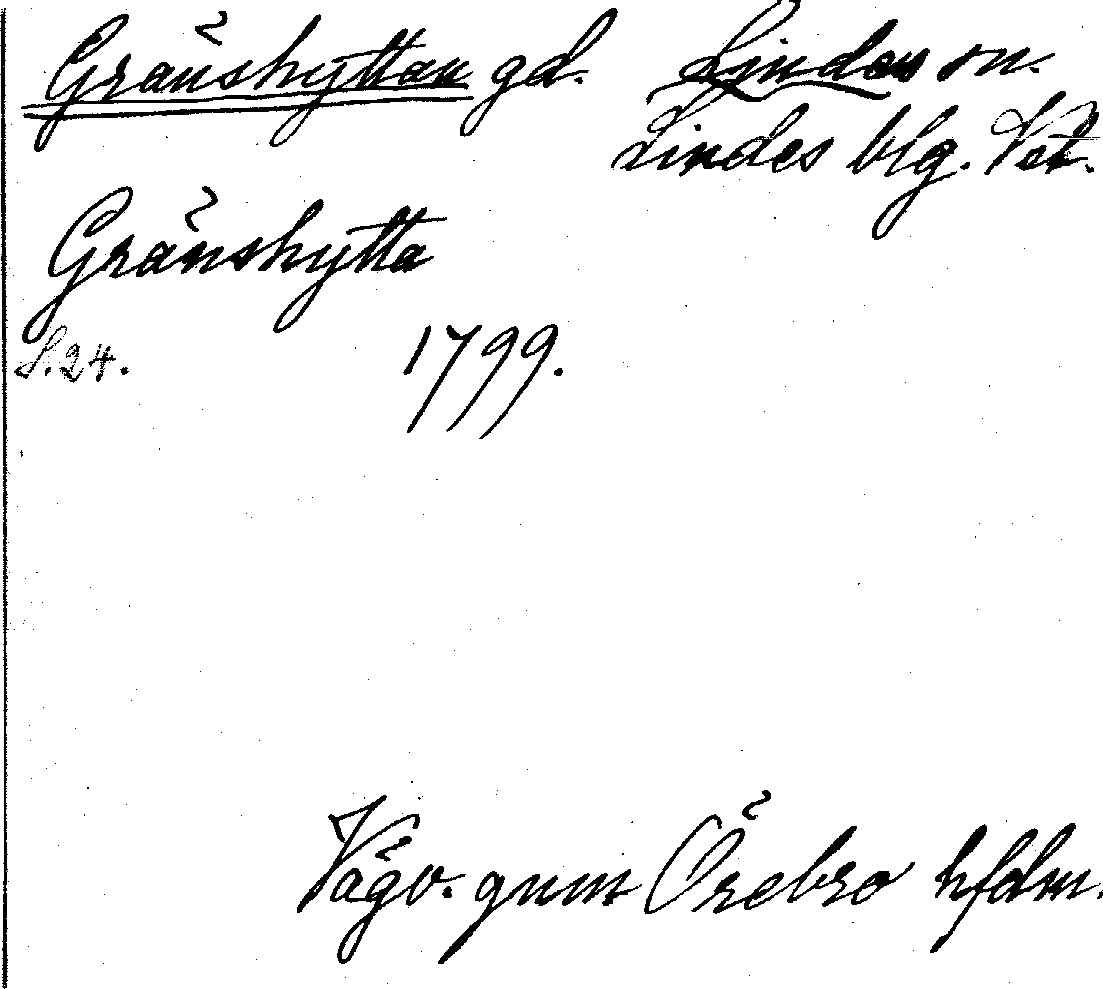 Gränshyttan gd. Lindes sn.
Lindes blg. Vst.
Gränshytta
S.24. 1799.
Vägv. gnm Örebro hfdm.